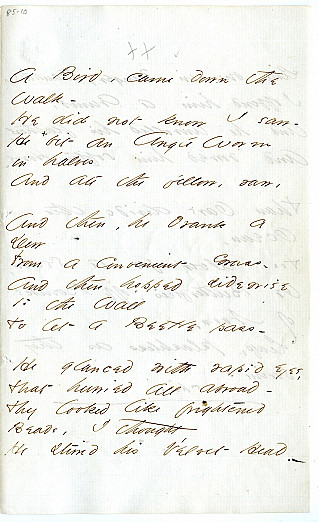 85-10
A Bird came down the
Walk -
He did not know I saw -
He bit an Angle Worm
in halves
And ate the fellow, raw,
And then, he drank a
Dew
From a Convenient Grass -
And then hopped sidewise
to the Wall
To let a Beetle pass -
He glanced with rapid eyes,
That hurried all abroad -
They looked like frightened
Beads, I thought
He stirred his Velvet Head. -